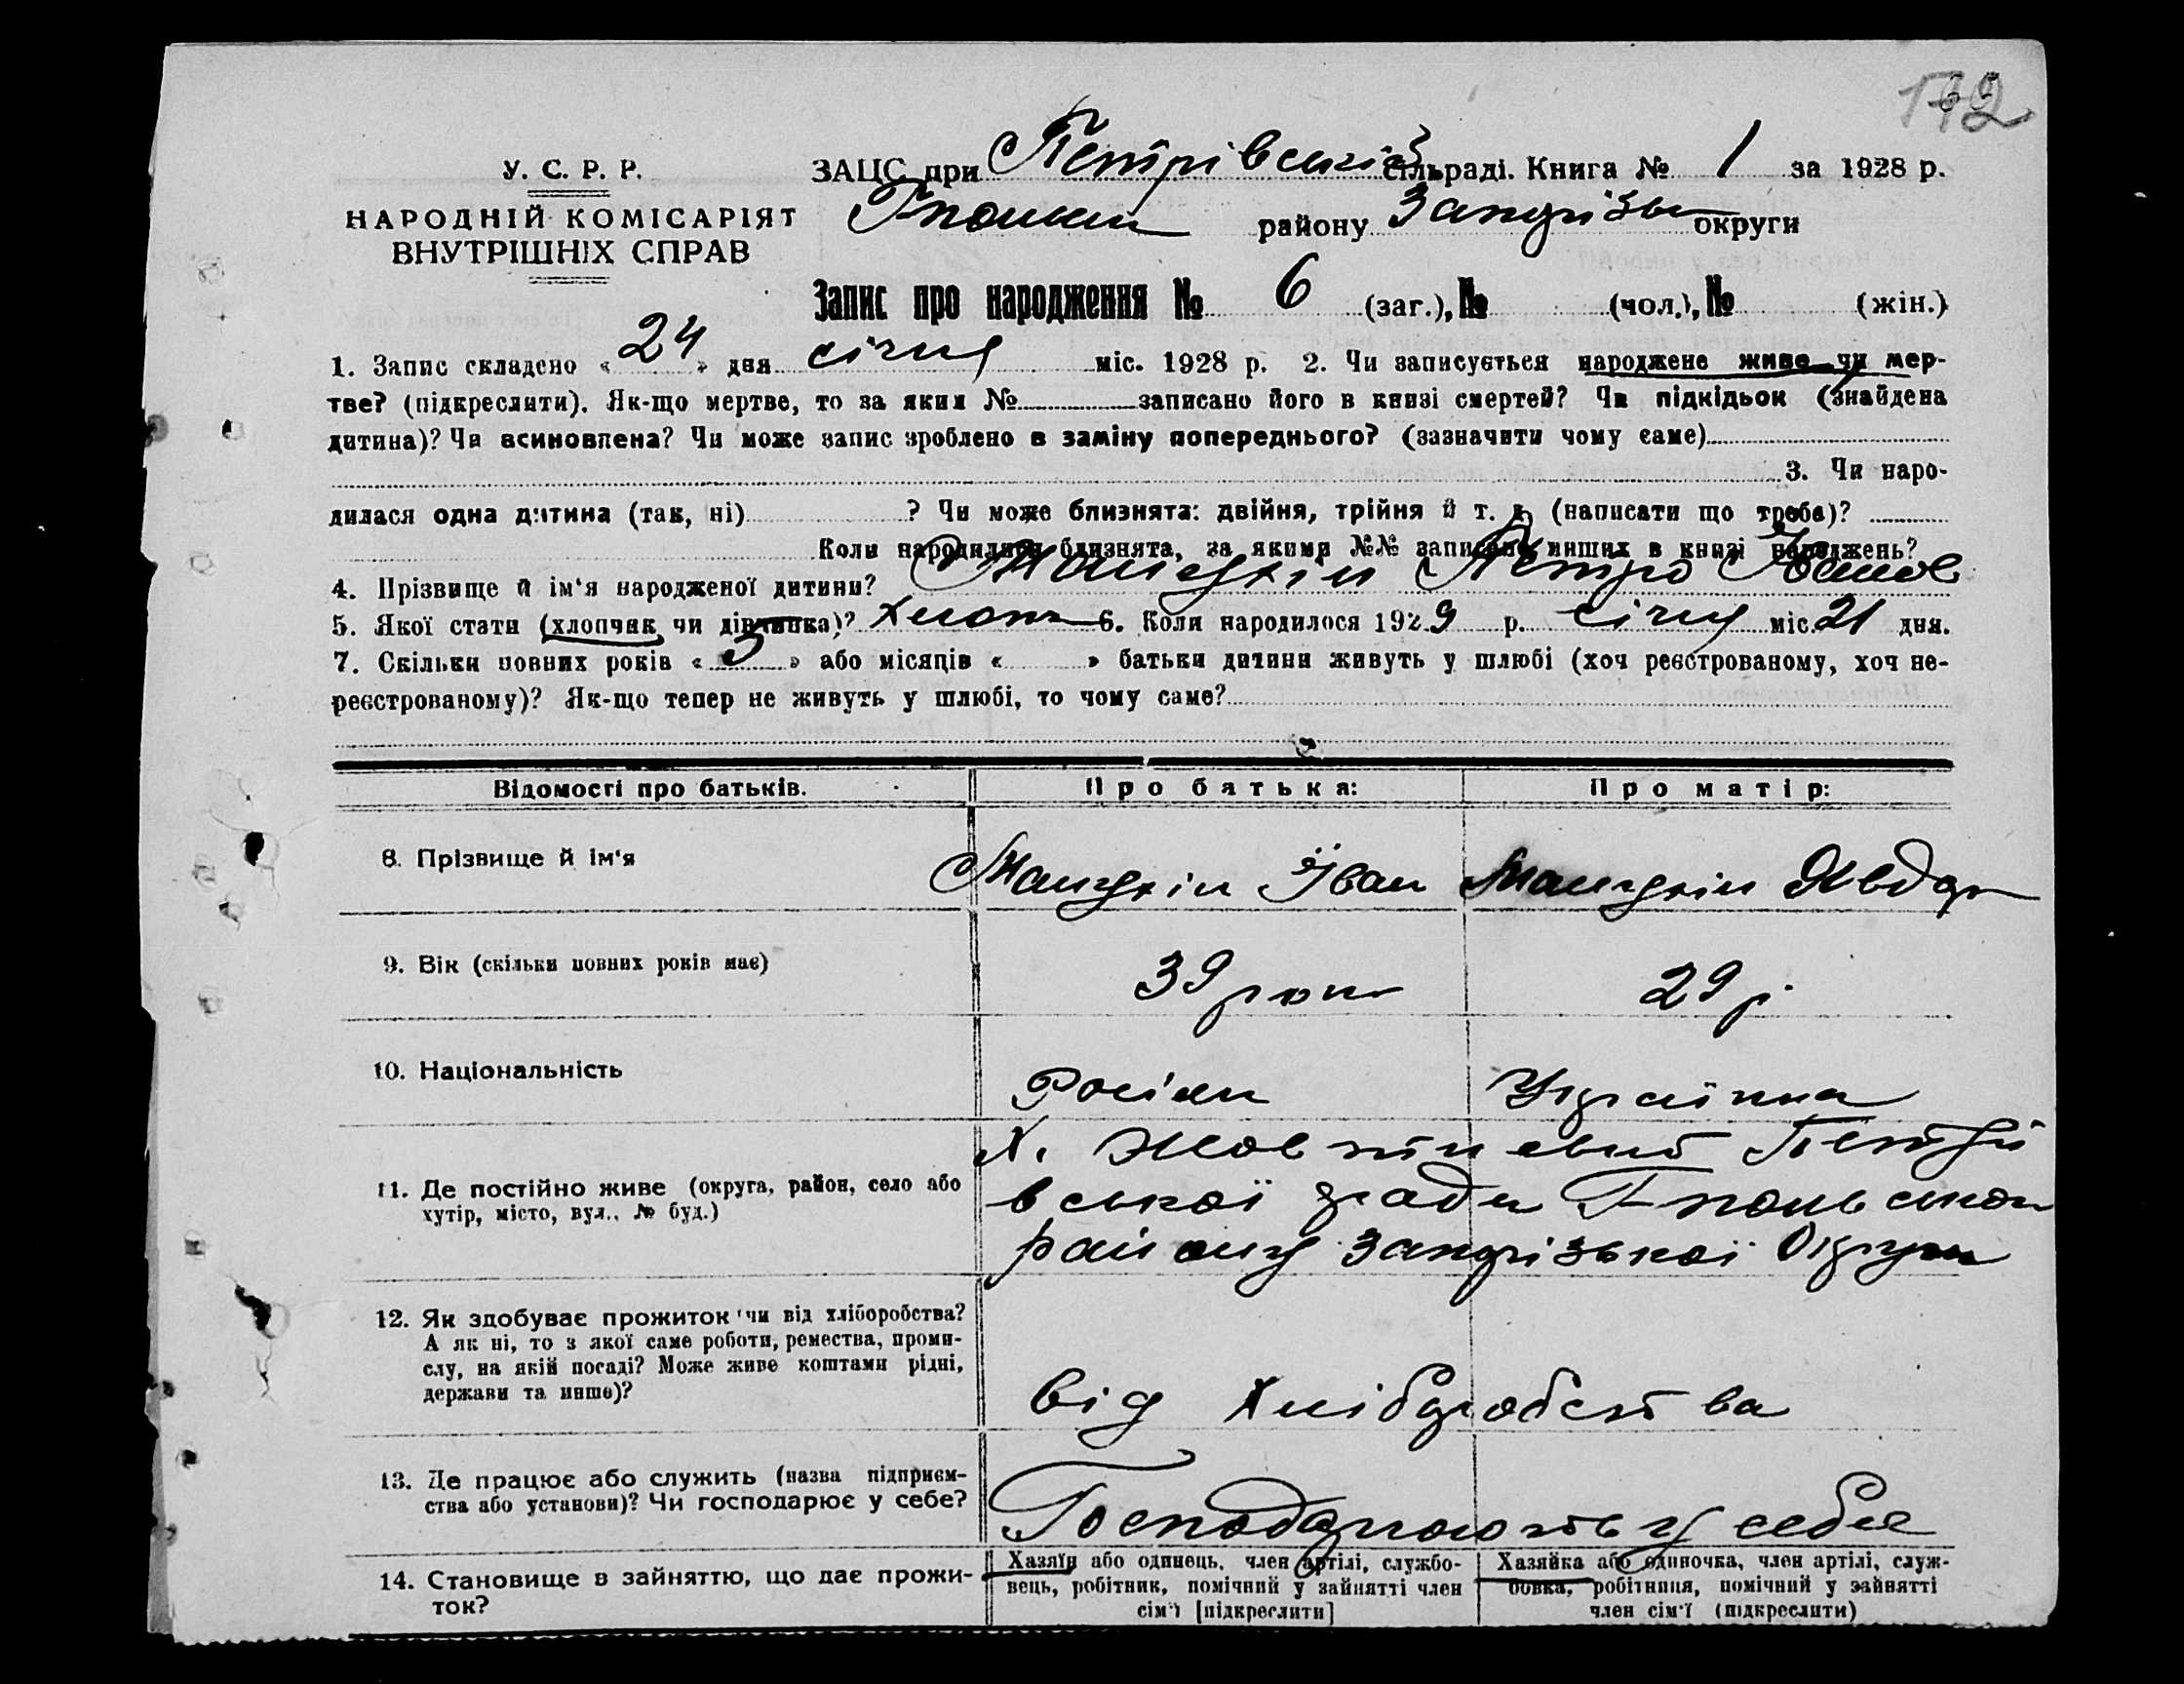 172
У. С. Р. Р.
НАРОДНІЙ КОМІСАРІЯТ
ВНУТРІШНІХ СПРАВ
ЗАЦС при Петрівській сільраді. Книга № 1 за 1928 р.
району округи
Запис про народження № 6 (заг.), № (чол.), № (жін.)
1. Запис складено « 24 » дня січня міс. 1928 р. 2. Чи записується народжене живе чи мер-
тве? (підкреслити). Як-що мертве, то за яким № записано його в книзі смертей? Чи підкідьок (знайдена
дитина)? Чи всиновлена? Чи може запис зроблено в заміну попереднього? (зазначити чому саме)
3. Чи наро-
дилася одна дитина (так, ні) ? Чи може близнята: двійня, трійня й т. д. (написати що треба)?
Коли народилися близнята, за якими №№ записано инших в книзі народжень?
4. Прізвище й ім'я народженої дитини? Петро Іванов
5. Якої стати (хлопчик чи дівчинка)? Хлопч 6. Коли народилося 1929 р. січня міс. 21 дня.
7. Скільки повних років « 3 » або місяців « » батьки дитини живуть у шлюбі (хоч реєстрованому, хоч не-
реєстрованому)? Як-що тепер не живуть у шлюбі, то чому саме?
Відомості про батьків. Про батька: Про матір:
8. Прізвище й ім'я Іван
9. Вік (скільки повних років має) 39 рок 29 р.
10. Національність Росіян Українка
11. Де постійно живе (округа, район, село або
хутір, місто, вул., № буд.)
х. Жовтневий Петрі
вської ради
району Запорізької Округи
12. Як здобуває прожиток (чи від хліборобства?
А як ні, то з якої саме роботи, ремества, проми-
слу, на якій посаді? Може живе коштами рідні,
держави та инше)?
від Хліборобства
13. Де працює або служить (назва підприєм-
ства або установи)? Чи господарює у себе?
Господарюють у себе
14. Становище в зайняттю, що дає прожи-
ток?
Хазяїн або одинець, член артілі, службо-
вець, робітник, помічний у зайнятті член
сім'ї [підкреслити]
Хазяйка або одиночка, член артілі, служ-
бовка, робітниця, помічний у зайнятті
член сім'ї (підкреслити)